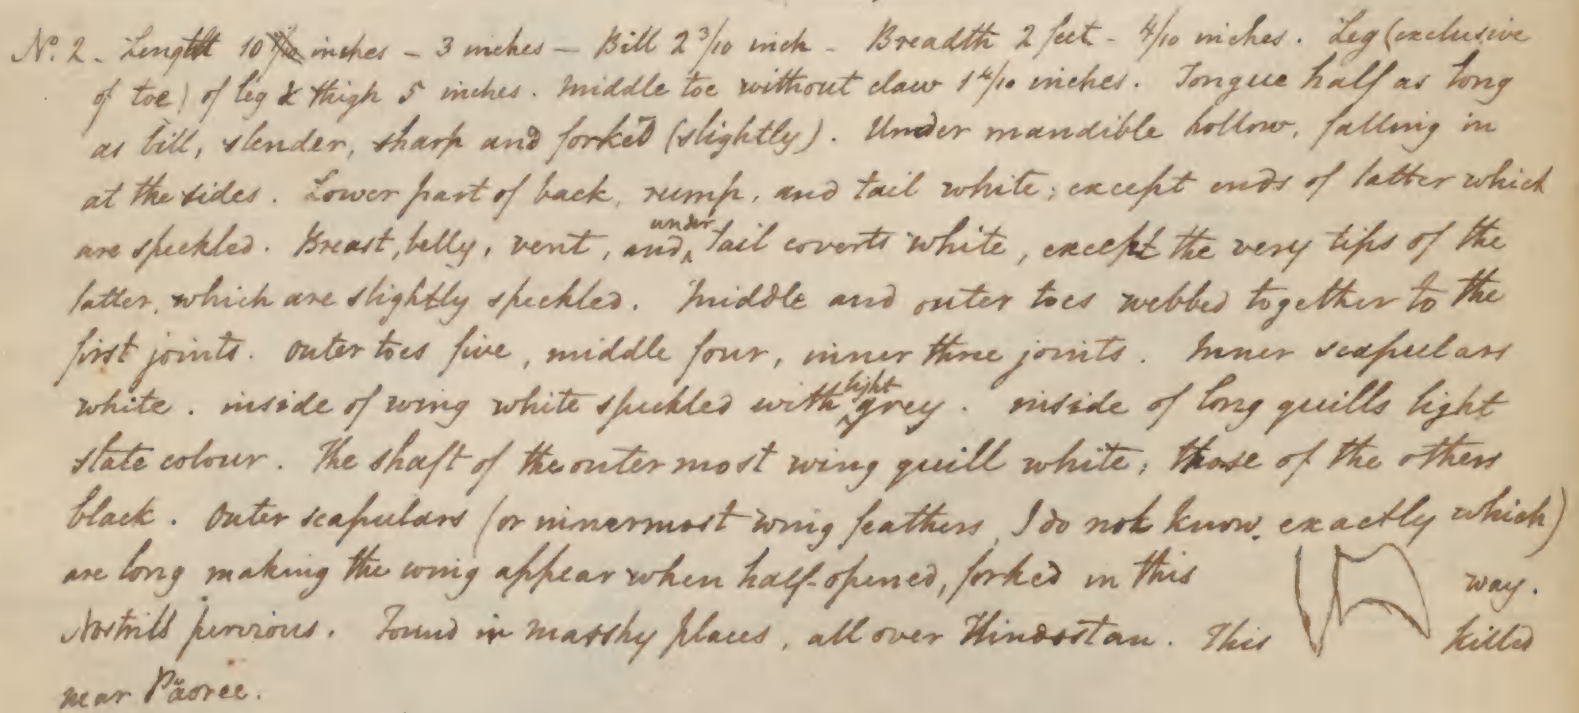 No. 2 - Length 10 inches - 3 inches - Bill 2 3/10 inch - Breadth 2 feet - 4/10 inches. Leg (exclusive
of toe) of leg & thigh 5 inches. Middle toe without claw 1 4/10 inches. Tongue half as long
as bill, slender, sharp and forked (slightly). Under mandible hollow, falling in
at the sides. Lower part of back, rump, and tail white; except ends of latter which
are speckled. Breast, belly, vent, and under tail coverts white, except the very tips of the
latter, which are slightly speckled. Middle and outer toes webbed together to the
first joints. Outer toes five, middle four, inner three joints. Inner scapulars
white. inside of wing white speckled with light grey. inside of long quills light
slate colour. The shaft of the outermost wing quill white; those of the others
black. Outer scapulars (or innermost wing feathers, I do not know exactly which)
are long making the wing appear when half-opened, forked in this way.
Nostrils pervious. Found in marshy places, all over Hindostan. This killed
near Päoree.